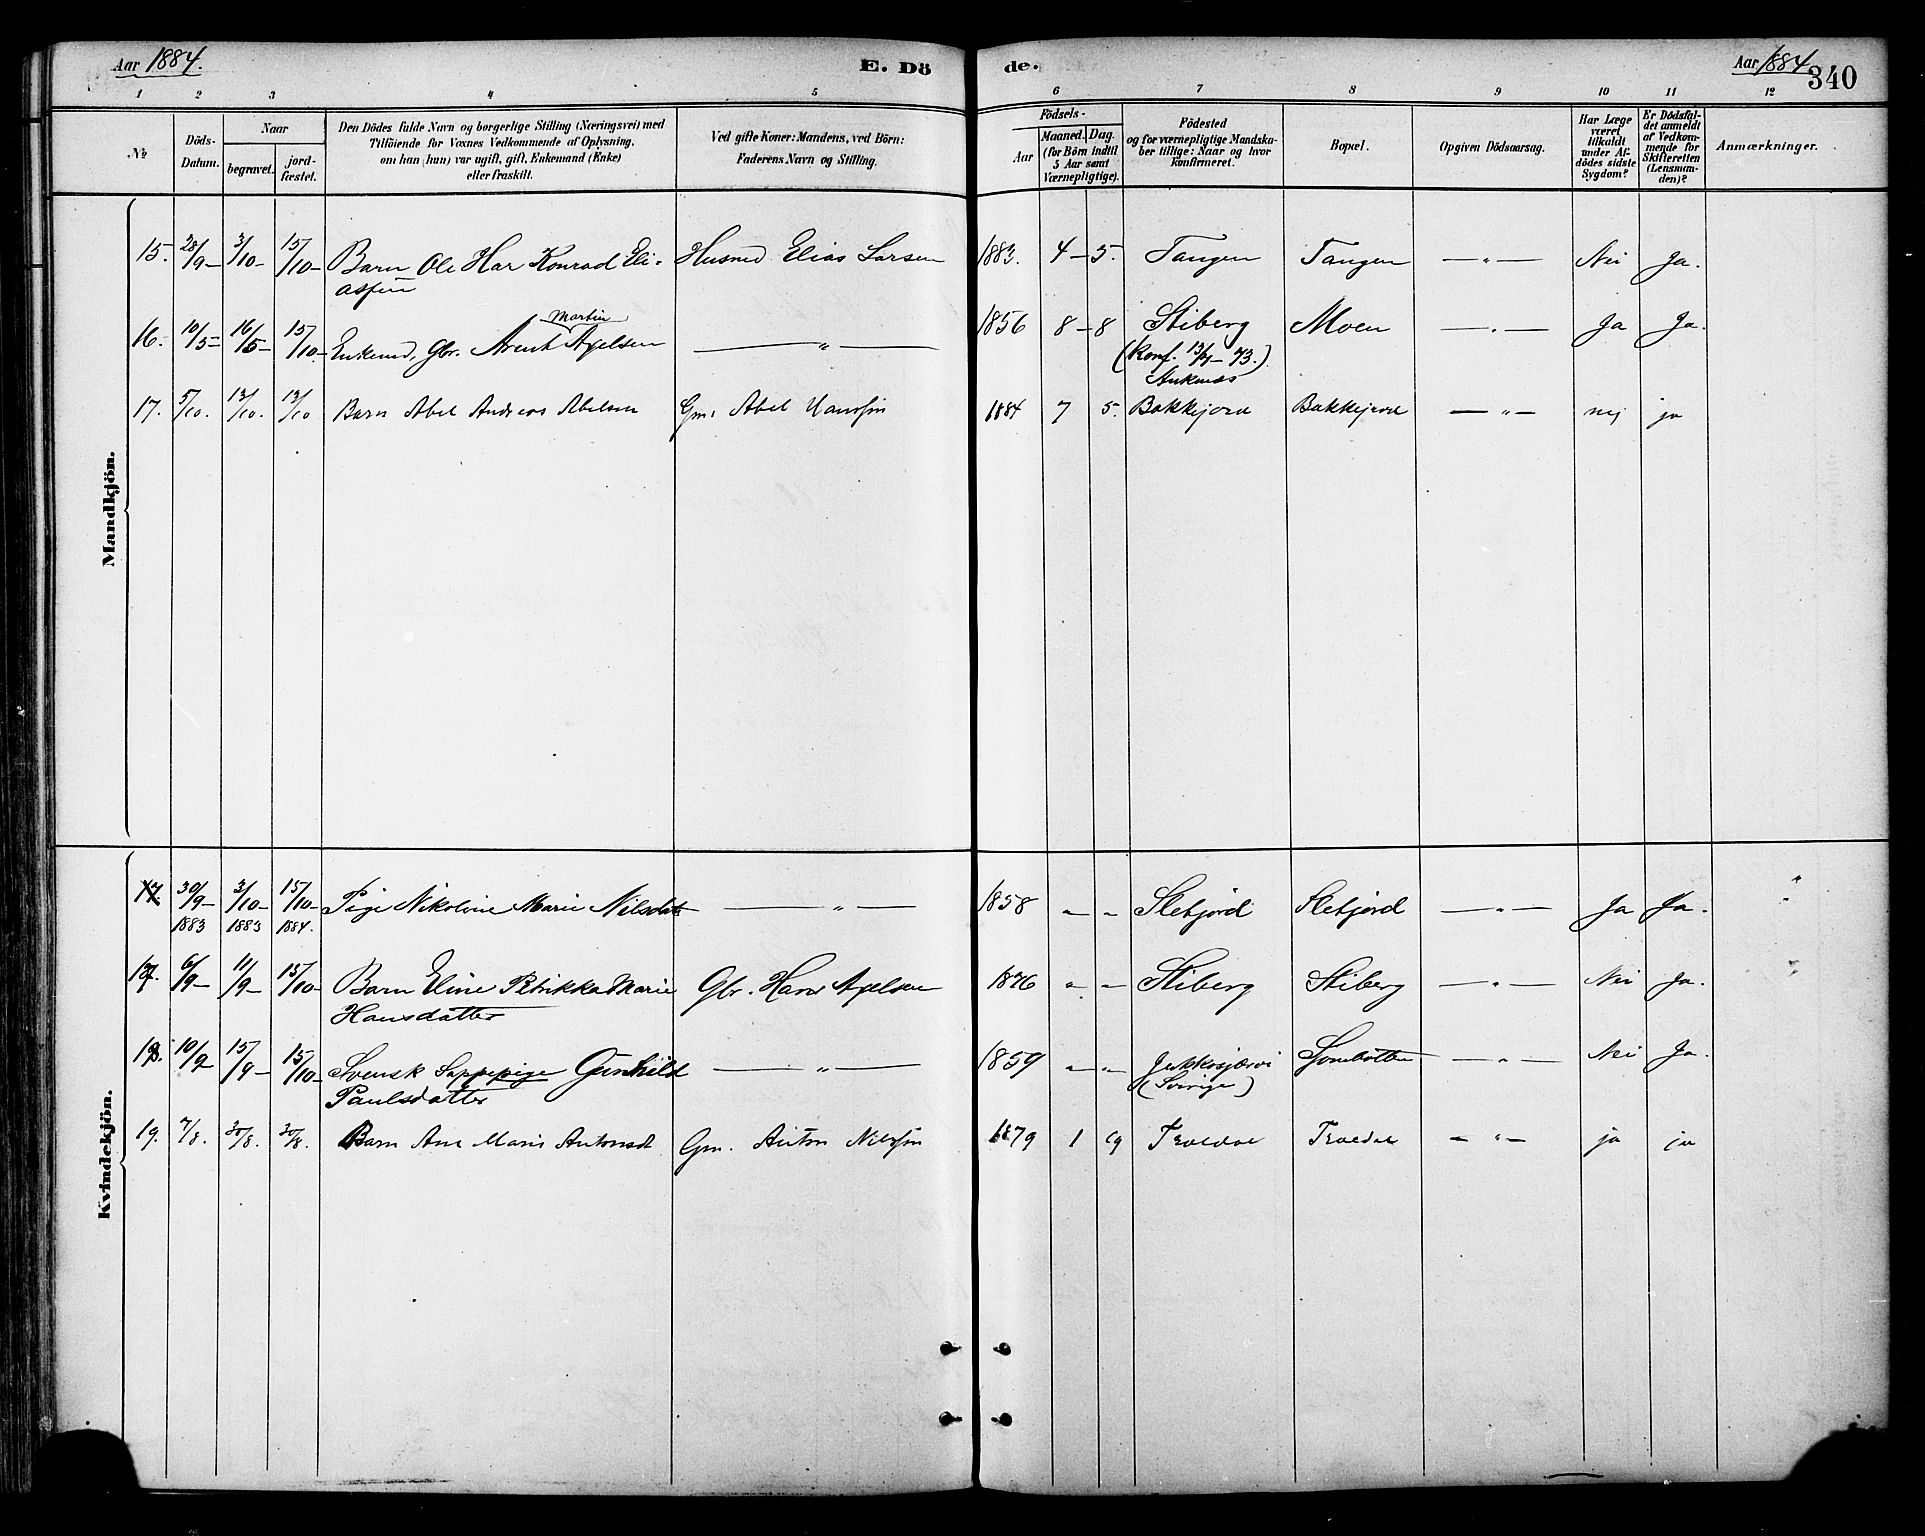 Aar 1884.
E. Dö
de.
Aar 1884
340
1 2 3 4 5 6 7 8 9 10 11 12
№
Döds-
Datum.
Naar
begravet.
jord-
fæstet.
Den Dödes fulde Navn og borgerlige Stilling (Næringsvei) med
Tilföiende for Voxnes Vedkommende af Oplysning,
om han (hun) var ugift, gift, Enkemand (Enke)
eller fraskilt.
Ved gifte Koner: Mandens, ved Börn:
Faderens Navn og Stilling.
Födsels-
Aar
Maaned.
Dag.
(for Börn indtil
5 Aar samt
Værnepligtige).
Födested
og for værnepligtige Mandska-
ber tillige: Naar og hvor
konfirmeret.
Bopæl.
Opgiven Dödsaarsag.
Har Læge
været
tilkaldt
under Af-
dödes sidste
Sygdom?
Er Dödsfal-
det anmeldt
af Vedkom-
mende for
Skifteretten
(Lensman-
den)?
Anmærkninger.
Mandkjön.
15. 28/9- 3/10- 15/10- Barn Ole Har Konrad Eli- Husmd. Elias Larsen 1883. 4 - 5. Tangen Tangen — „ — Nei Ja.
assen
Martin
16. 10/5- 16/5- 15/10- Enkemd, Gbr. Arent Axelsen — „ — 1856 8 - 8 Stiberg Moen — „ — Ja Ja.
(Konf. 13/7- 73.)
Ankenes
17. 5/10. 12/10. 12/10 Barn Abel Andreas Abelsen Gm: Abel Hansen 1884 7 5. Bakkejord Bakkejord — „ — nej ja
Kvindekjön.
17. 30/9- 3/10- 15/10- Pige Nikoline Marie Nilsdatr — „ — 1858 „ „ Slebjord Slebjord — „ — Ja Ja.
1883 1883 1884.
17. 6/9- 11/9- 15/10- Barn Eline Petrikka Marie Gbr. Hans Axelsen 1876 „ — Stiberg Stiberg — „ — Nei Ja.
Hansdatter
18. 10/9 15/9- 15/10- Svensk Lappepige Gunhild — „ — 1859 „ „ Jukkasjærvi Sombotten — „ — Nei Ja.
Paulsdatter
(Sverige)
19. 7/8. 30/8. 30/8. Barn Ane Maris Antonsdt Gm. Anton Nilssøn 1879 1 19 Trældal Trældal — „ — ja ja